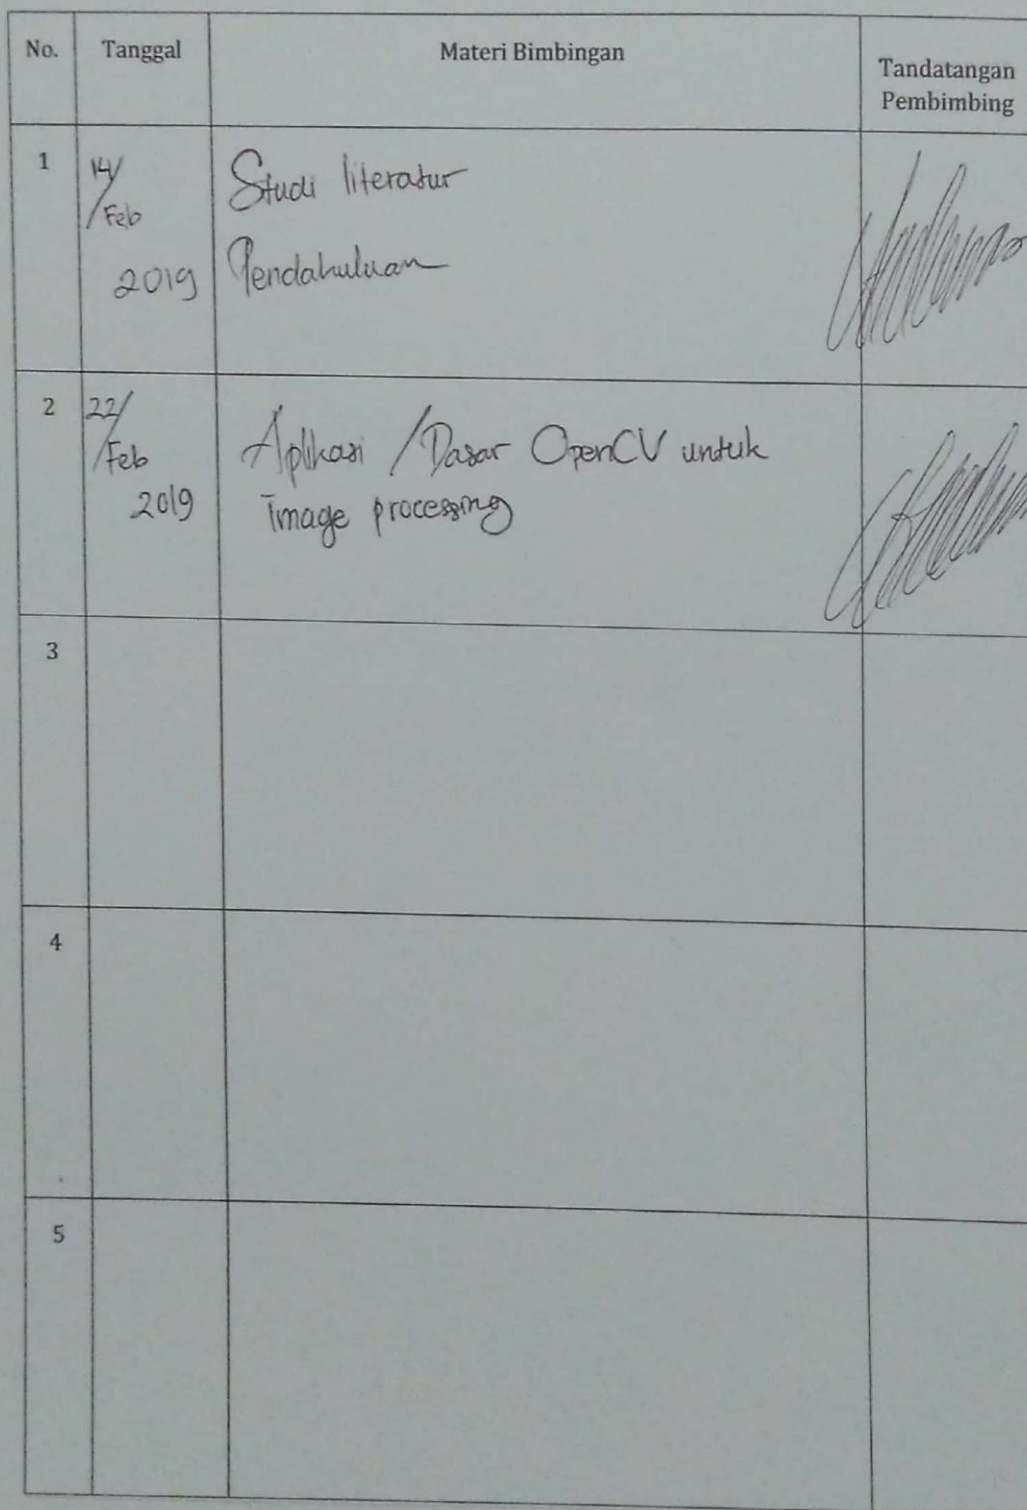 No. Tanggal Materi Bimbingan Tandatangan
Pembimbing
1 14/ Studi literatur
Feb
2019 Pendahuluan
2 22/
Feb Aplikasi / Dasar OpenCV untuk
2019 Image processing
3
4
5